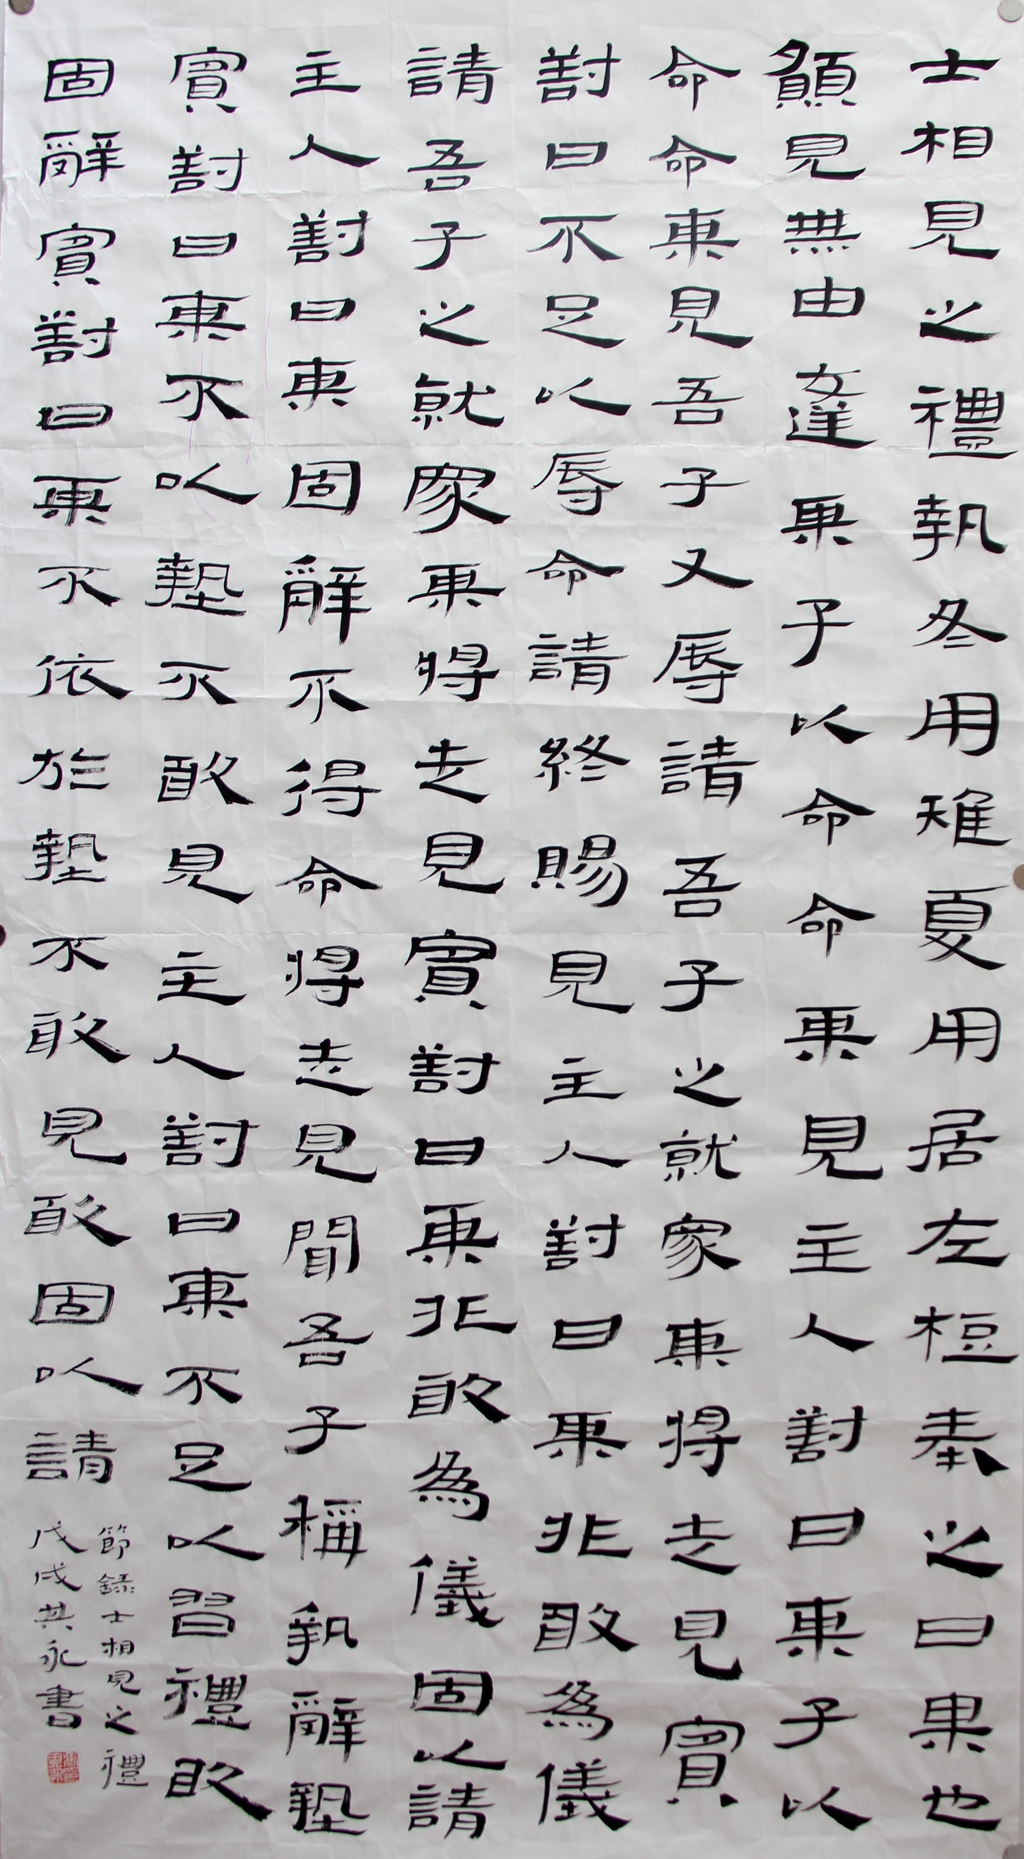 士相見之禮執冬用雉夏用居左梪奉之曰某也
願見無由達某子以命命某見主人對曰某子以
命命某見吾子又辱請吾子之就家某將走見賓
對曰不足以辱命請終賜見主人對曰某非敢為儀
請吾子之就家某將走見賓對曰某非敢為儀固以請
主人對曰某固辭不得命將走見聞吾子稱執辭墊
賓對曰某不以墊不敢見主人對曰某不足以習禮敢
固辭賓對曰某不依於墊不敢見敢固以請
節録士相見之禮
戊戌其永書